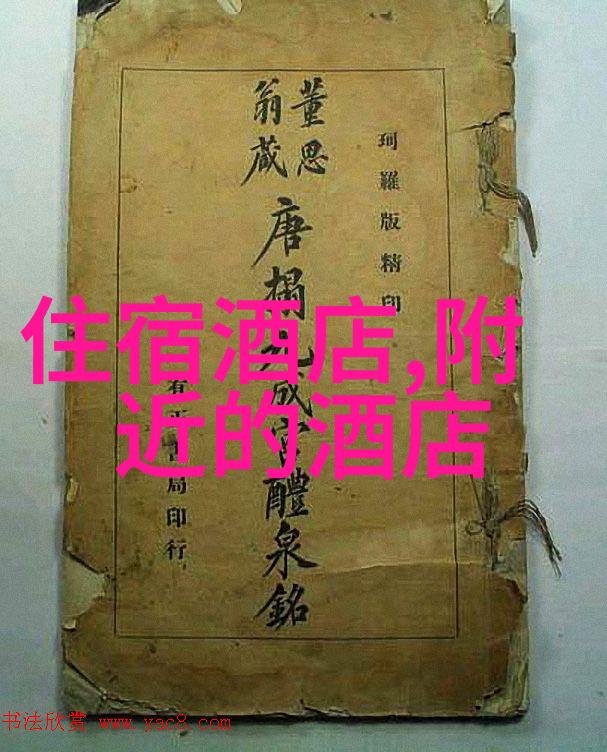 珂羅版精印
董思
翁藏
唐榻九成宮醴泉銘
有正書局印行
住宿酒店,附
近的酒店
书法欣赏 www.yac8.com